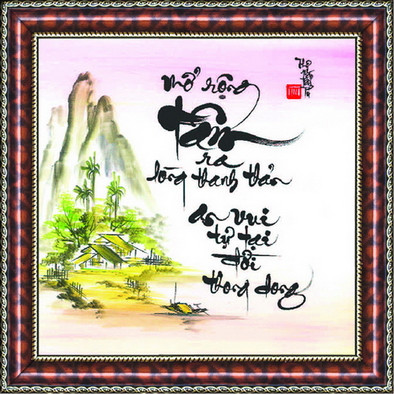 mở rộng
tâm
ra
lòng thanh thản
an vui
tự tại
đời
thong dong